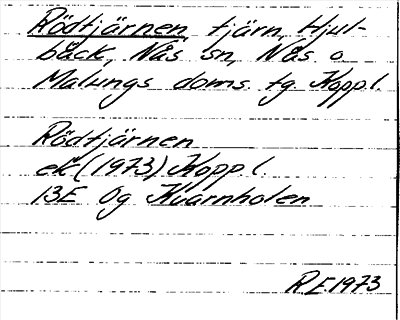 Rödtjärnen, tjärn, Hjul-
bäck, Nås sn, Nås o
Malungs doms. tg. Kopp.l.
Rödtjärnen
ek (1973) Kopp.l.
13E 0g Kvarnholen
R.E.1973